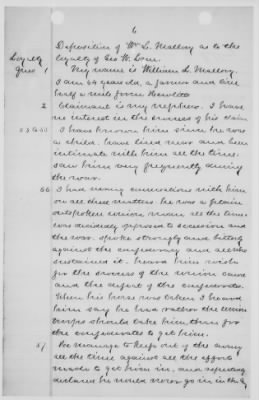 6
Deposition of Wm L. Mallory as to the
Loyalty loyalty of Geo W. 
Ques 1 My name is William L. Mallory.
I am 64 years old, a farmer and live
half a mile from
2 Claimant is my nephew. I have
no interest in the success of his claim
I have known him since he was
a child. have lived near and been
intimate with him all the time.
saw him very frequently during
the war.
56 I had many conversations with him
on all these matters. he was a plain
outspoken union man all the time.
was decidedly opposed to secession and
the war. spoke strongly and bitterly
against the confederacy and all who
sustained it. heard him wish
for the success of the union cause
and the defeat of the confederates.
When his horse was taken I heard
him say he had rather the union
troops should take him than for
the confederates to get him.
57 He managed to keep out of the army
all the time against all the efforts
made to get him in, and repeatedly
declared he would never go in in the